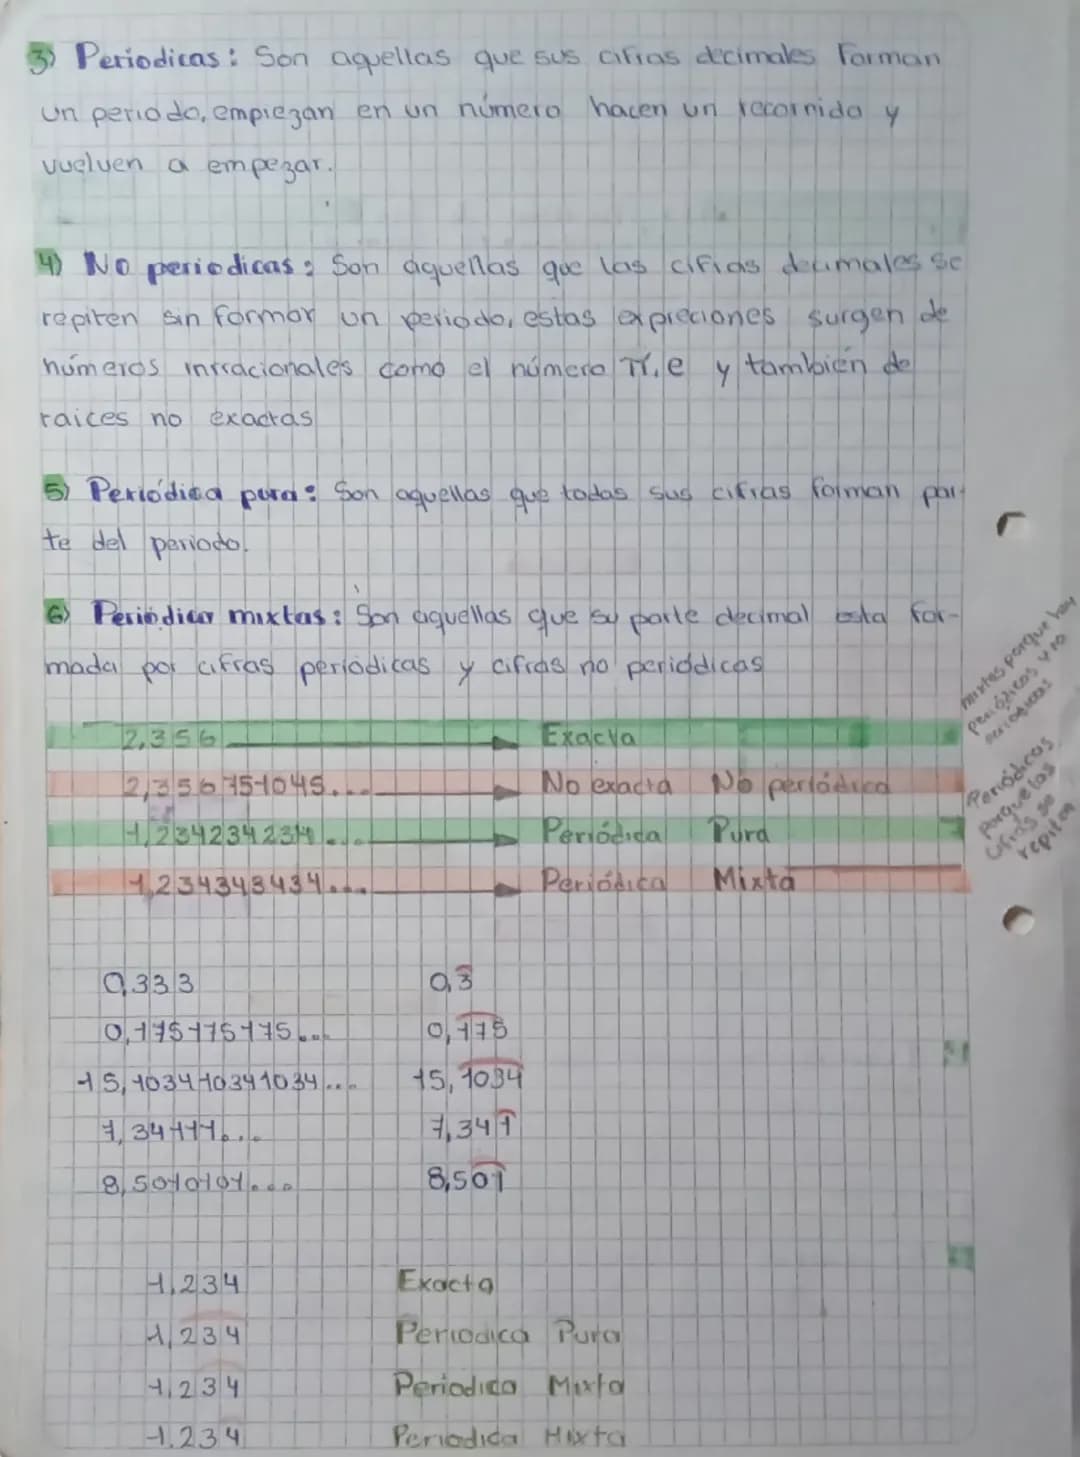 3) Periodicas: Son aquellas que sus cifras decimales Forman
un periodo, empiezan en un número hacen un recorrido y
vuelven a empezar.
4) No periodicas: Son aquellas que las cifras decimales se
repiten sin formar un periodo, estas expreciones surgen de
números inrracionales como el número π, e y también de
raices no exactas
5) Periódica pura: Son aquellas que todas sus cifras forman par-
te del periodo.
6) Periódica mixtas: Son aquellas que su parte decimal esta for-
mada por cifras periódicas y cifras no periódicas
mixtas porque hay
periódicos y no
periodicos
2,356 Exacta
2,3567151045... No exacta No periódica
1,234234234... Periódica Pura
1,234343434... Periódica Mixta
Periódicas
porque las
cifras se
repiten
0,333 0,3̅
0,175175175... 0,1̅7̅5̅
15,103410341034... 15,1̅0̅3̅4̅
7,34111... 7,341̅
8,5010101... 8,50̅1̅
1,234 Exacta
1,2̅3̅4̅ Periodica Pura
1,23̅4̅ Periodica Mixta
1,234̅ Periodica Mixta